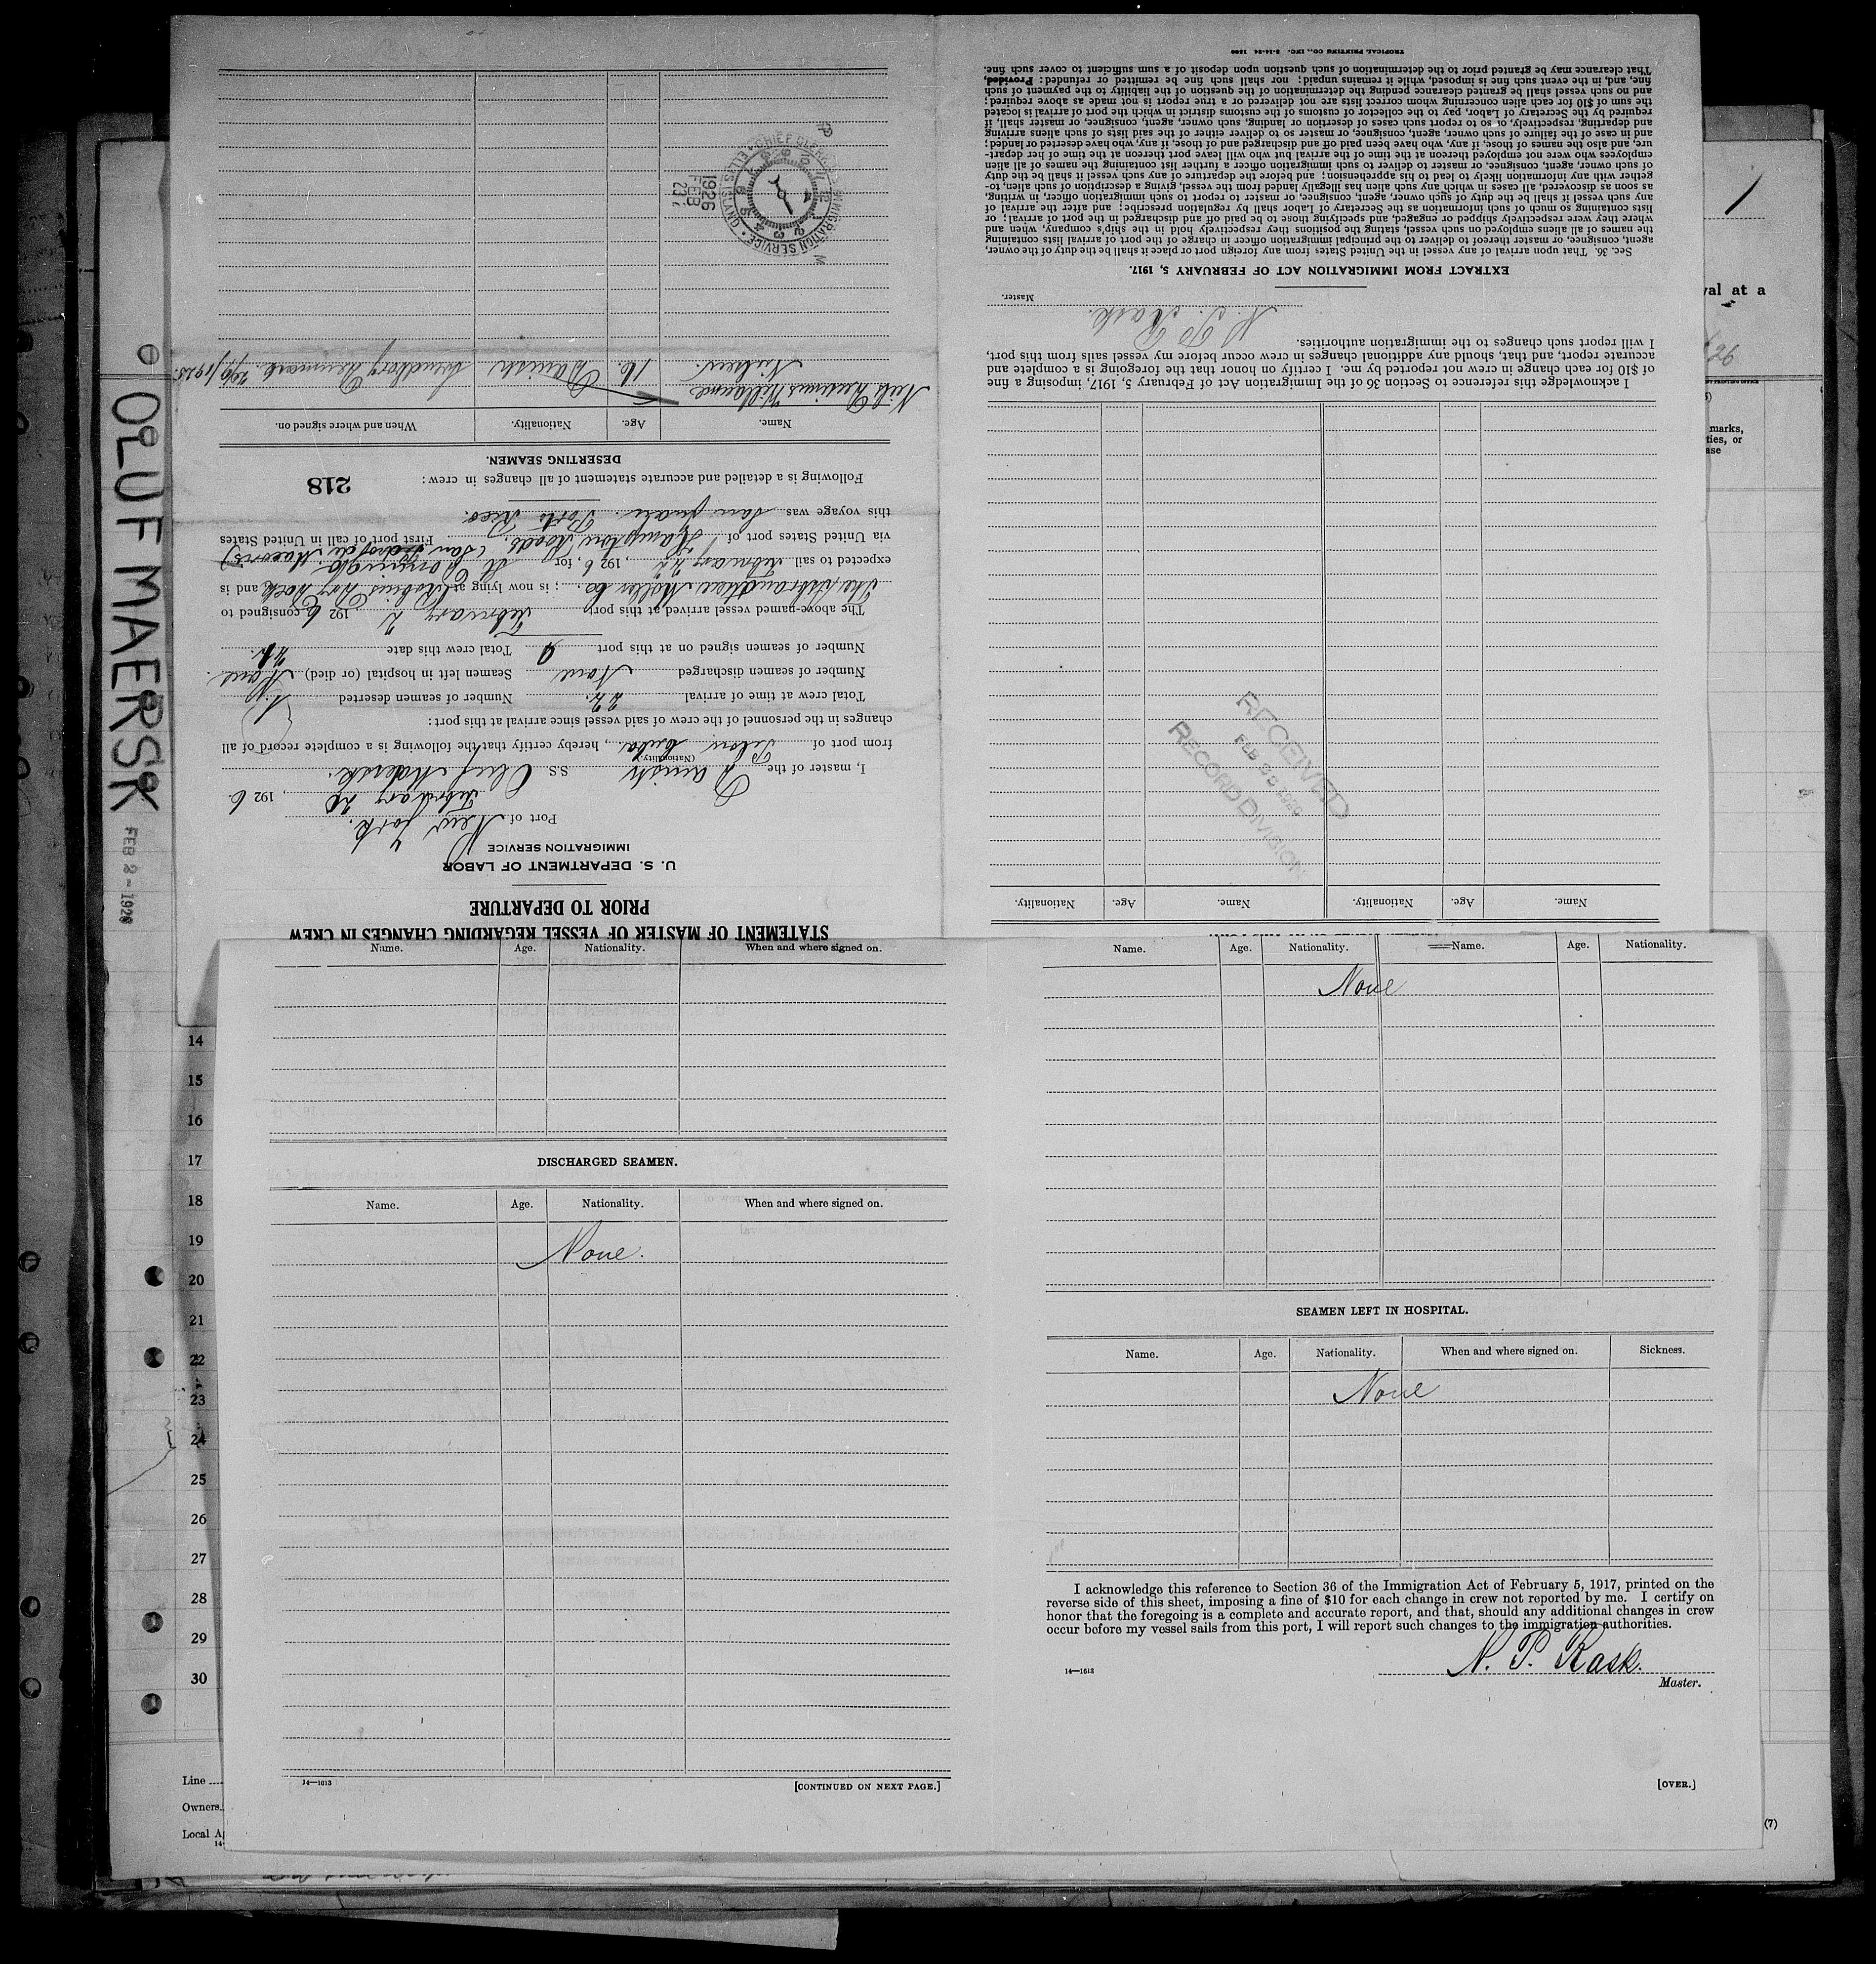 STATEMENT OF MASTER OF VESSEL REGARDING CHANGES IN CREW
PRIOR TO DEPARTURE
U. S. DEPARTMENT OF LABOR
IMMIGRATION SERVICE
Port of New York.
February 20, 1926
I, master of the Danish S.S. Oluf Maersk.
(Nationality.)
from port of Cuba, hereby certify that the following is a complete record of all
changes in the personnel of the crew of said vessel since arrival at this port:
Total crew at time of arrival Number of seamen deserted 1
Number of seamen discharged None Seamen left in hospital (or died) None.
Number of seamen signed on at this port Total crew this date
The above-named vessel arrived at this port February 2, 1926 consigned to
; is now lying at Robins Dry Dock and is
expected to sail February, 1926, for
via United States port of Hampton Roads. First port of call in United States
this voyage was San Juan Porto Rico.
Following is a detailed and accurate statement of all changes in crew:
218
DESERTING SEAMEN.
Name. Age. Nationality. When and where signed on.
Nielsen. 16. Danish Svendborg Denmark. 1925.
1926
FEB
CHIEF CLERK
IMMIGRATION SERVICE
ELLIS ISLAND
Name. Age. Nationality. Name. Age. Nationality.
RECEIVED
FEB
RECORD DIVISION
I acknowledge this reference to Section 36 of the Immigration Act of February 5, 1917, imposing a fine
of $10 for each change in crew not reported by me. I certify on honor that the foregoing is a complete and
accurate report, and that, should any additional changes in crew occur before my vessel sails from this port,
I will report such changes to the immigration authorities.
N. P. Rask.
Master.
EXTRACT FROM IMMIGRATION ACT OF FEBRUARY 5, 1917.
Sec. 36. That upon arrival of any vessel in the United States from any foreign port or place it shall be the duty of the owner,
agent, consignee, or master thereof to deliver to the principal immigration officer in charge of the port of arrival lists containing
the names of all aliens employed on such vessel, stating the positions they respectively hold in the ship's company, when and
where they were respectively shipped or engaged, and specifying those to be paid off and discharged in the port of arrival; or
lists containing so much of such information as the Secretary of Labor shall by regulation prescribe; and after the arrival of
any such vessel it shall be the duty of such owner, agent, consignee, or master to report to such immigration officer, in writing,
as soon as discovered, all cases in which any such alien has illegally landed from the vessel, giving a description of such alien, to-
gether with any information likely to lead to his apprehension; and before the departure of any such vessel it shall be the duty
of such owner, agent, consignee, or master to deliver to such immigration officer a further list containing the names of all alien
employees who were not employed thereon at the time of the arrival but who will leave port thereon at the time of her depart-
ure, and also the names of those, if any, who have been paid off and discharged and of those, if any, who have deserted or landed;
and in case of the failure of such owner, agent, consignee, or master so to deliver either of the said lists of such aliens arriving
and departing, respectively, or so to report such cases of desertion or landing, such owner, agent, consignee, or master shall, if
required by the Secretary of Labor, pay to the collector of customs of the customs district in which the port of arrival is located
the sum of $10 for each alien concerning whom correct lists are not delivered or a true report is not made as above required;
and no such vessel shall be granted clearance pending the determination of the question of the liability to the payment of such
fine, and, in the event such fine is imposed, while it remains unpaid; nor shall such fine be remitted or refunded: Provided,
That clearance may be granted prior to the determination of such question upon deposit of a sum sufficient to cover such fine.
TROPICAL PRINTING CO., INC.
OLUF MAERSK
FEB 2 - 1926
val at a
26
marks,
ties, or
ase
Name. Age. Nationality. When and where signed on.
14
15
16
17
18
19
20
21
22
23
24
25
26
27
28
29
30
DISCHARGED SEAMEN.
Name. Age. Nationality. When and where signed on.
None.
14—1613
[CONTINUED ON NEXT PAGE.]
Line
Owners
Local A
14-
Name. Age. Nationality. Name. Age. Nationality.
None
SEAMEN LEFT IN HOSPITAL.
Name. Age. Nationality. When and where signed on. Sickness.
None
I acknowledge this reference to Section 36 of the Immigration Act of February 5, 1917, printed on the
reverse side of this sheet, imposing a fine of $10 for each change in crew not reported by me. I certify on
honor that the foregoing is a complete and accurate report, and that, should any additional changes in crew
occur before my vessel sails from this port, I will report such changes to the immigration authorities.
N. P. Rask.
14—1613
Master.
[OVER.]
(7)